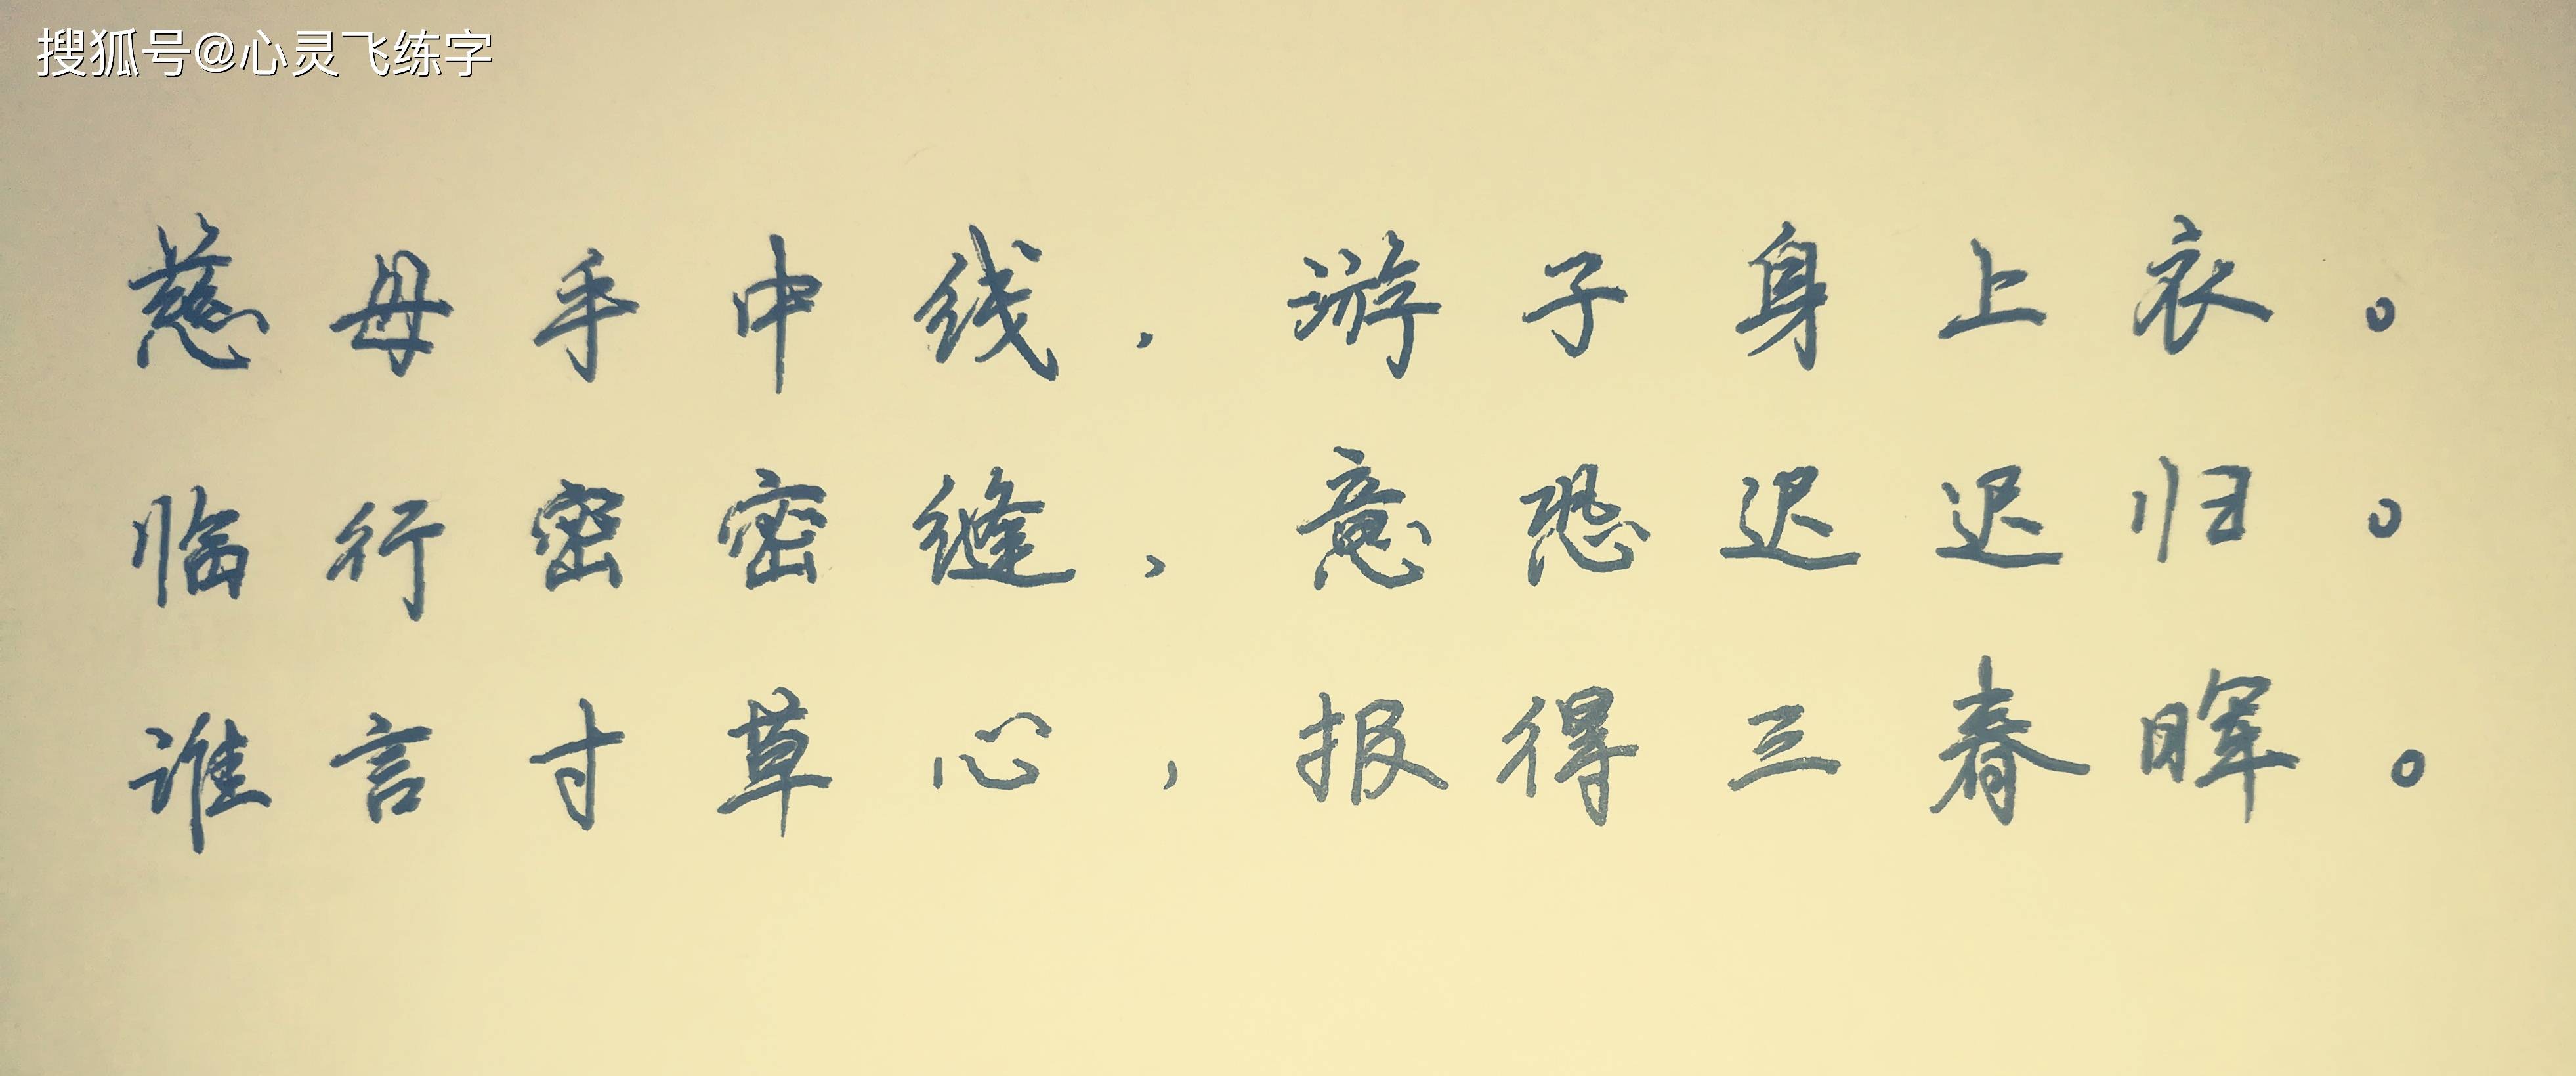 搜狐号@心灵飞练字
慈母手中线，游子身上衣。
临行密密缝，意恐迟迟归。
谁言寸草心，报得三春晖。